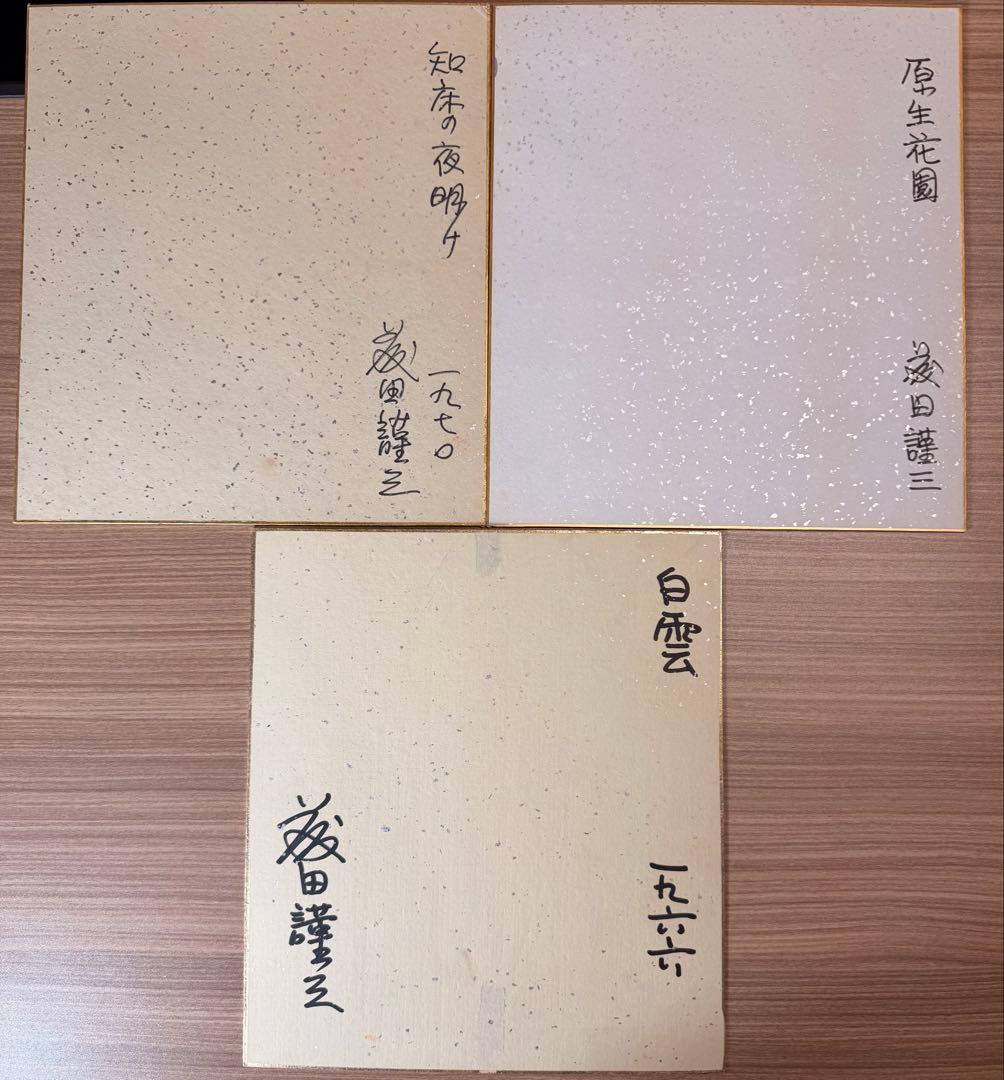 知床の夜明け
一九七〇
田謹三
原生花園
田謹三
白雲
一九六六
田謹三